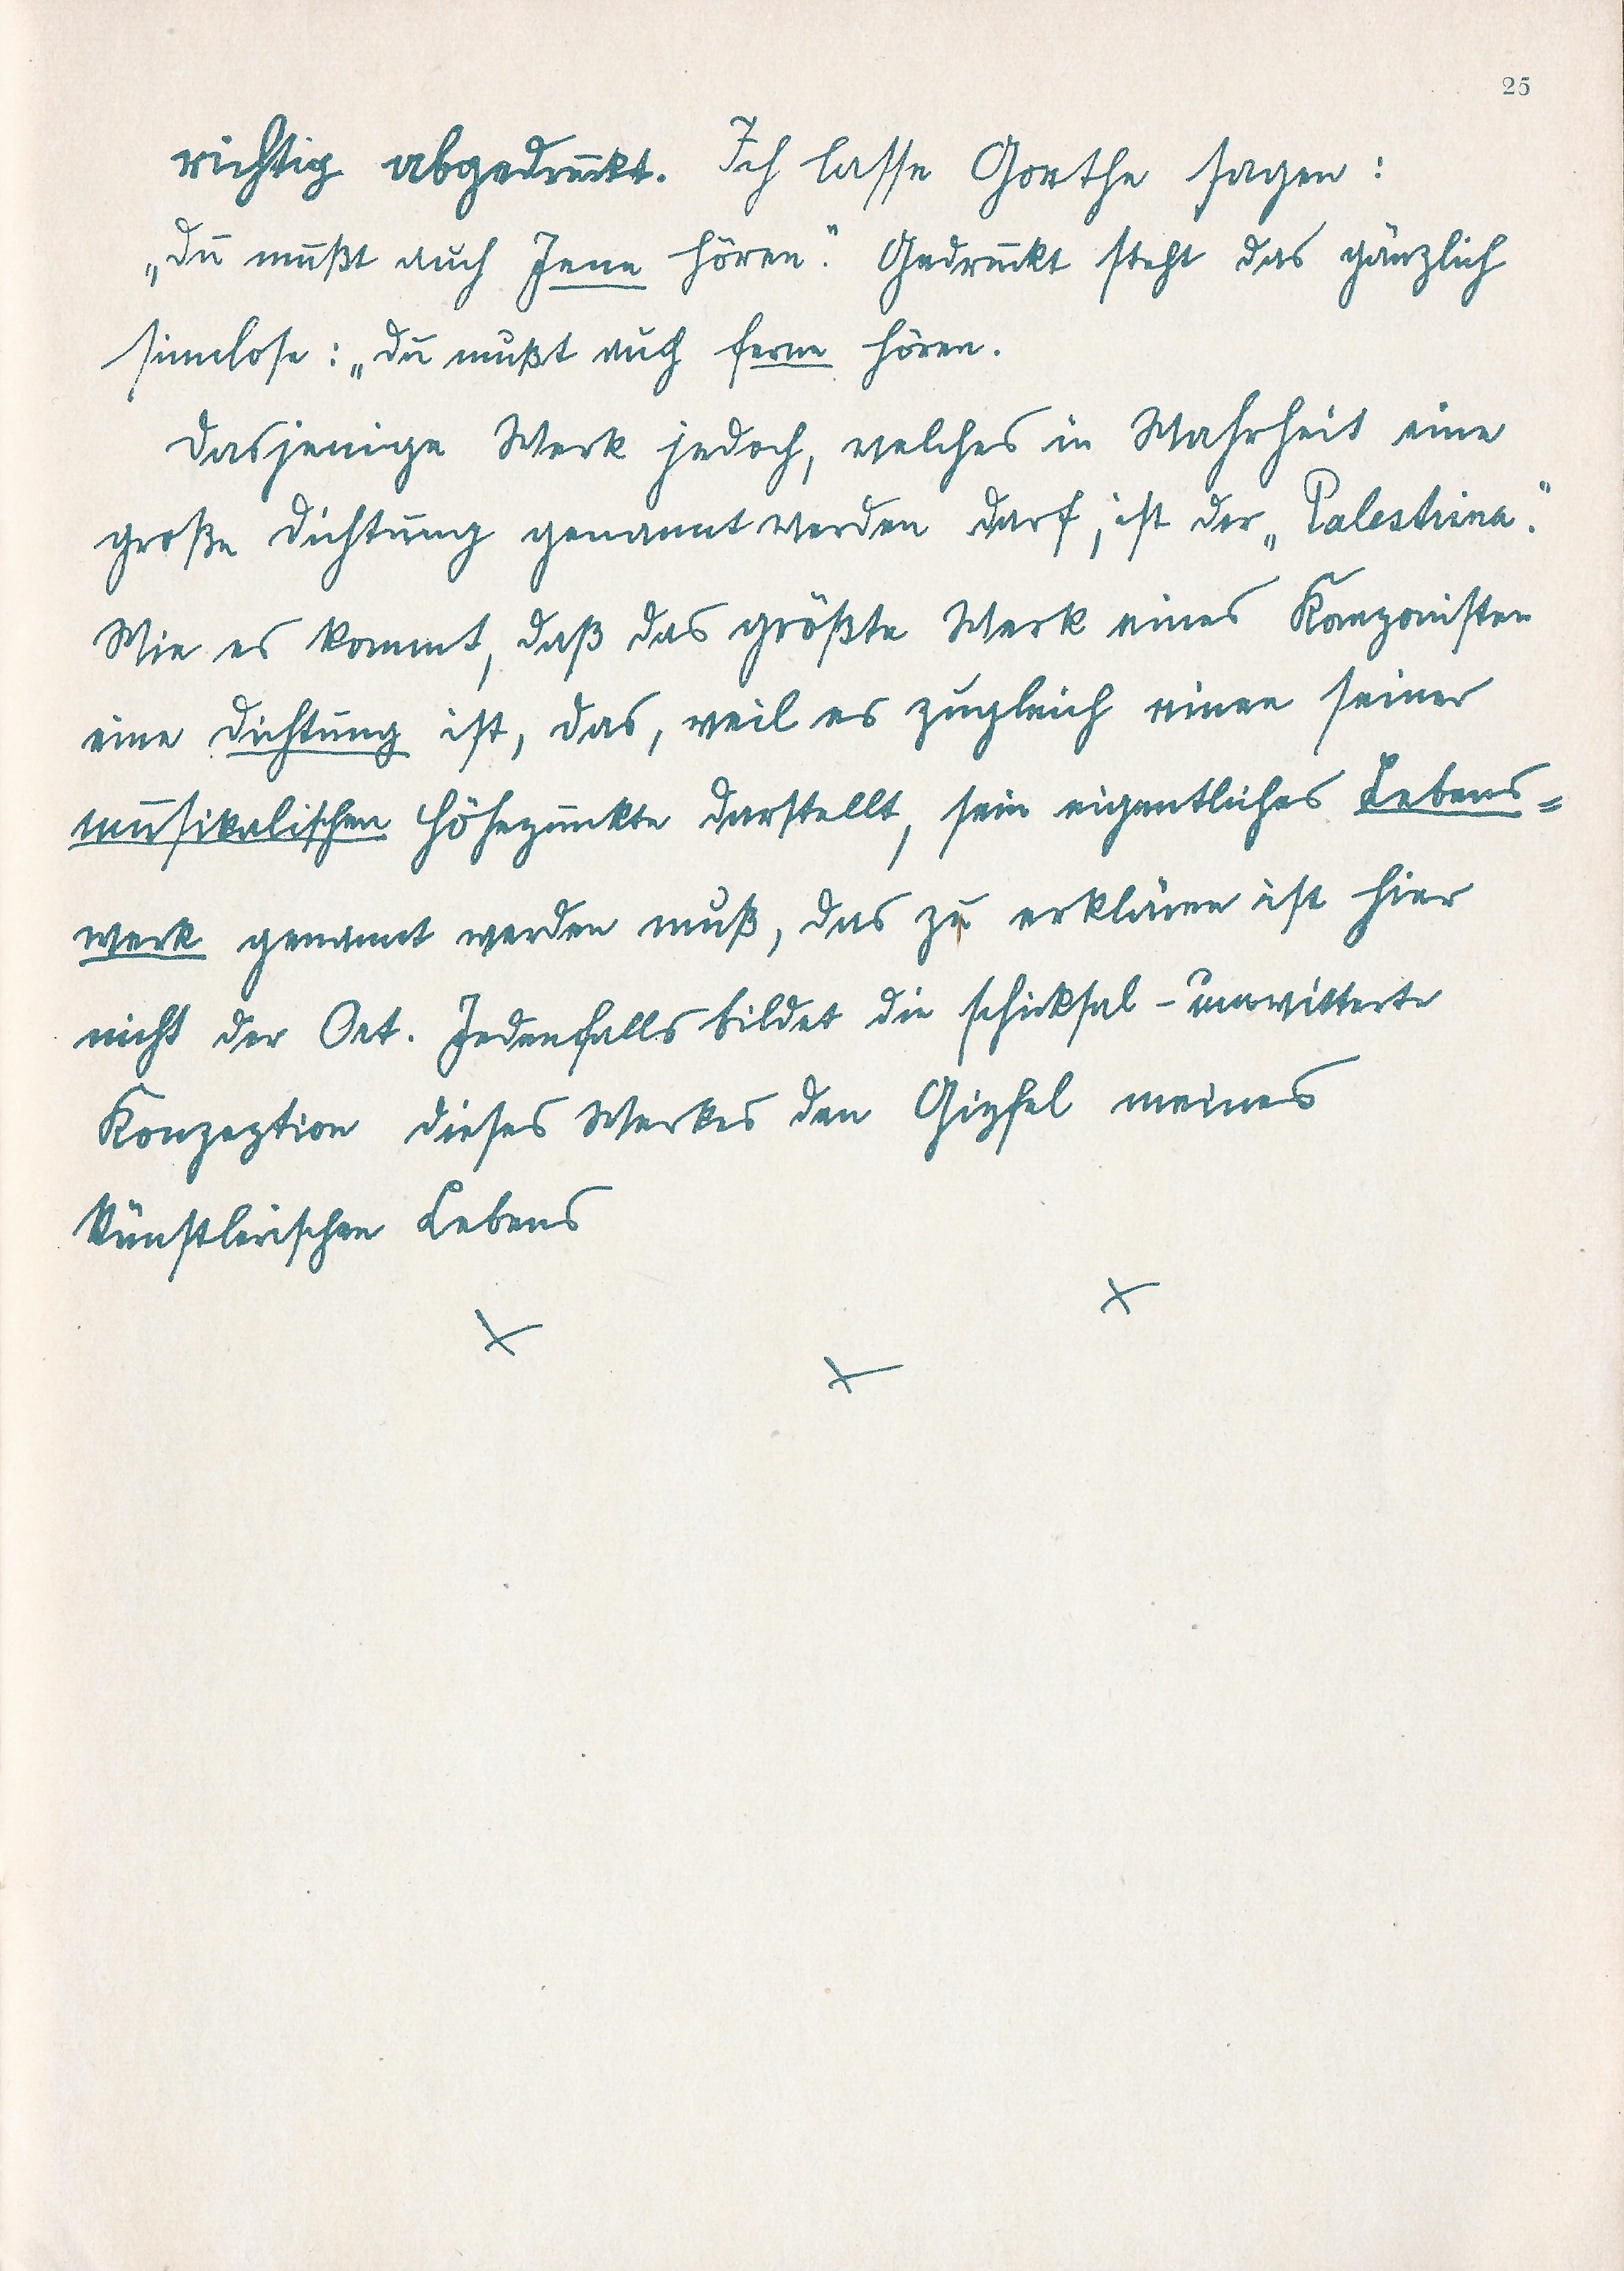 25
richtig abgedruckt. Ich lasse Goethe sagen:
„Du mußt auch Jene hören". Gedruckt steht das gänzlich
sinnlose: „Du mußt auch ferne hören.
Dasjenige Werk jedoch, welches in Wahrheit eine
große Dichtung genannt werden darf, ist der „Palestrina".
Wie es kommt, daß das größte Werk eines Komponisten
eine Dichtung ist, das, weil es zugleich einen seiner
musikalischen Höhepunkte darstellt, sein eigentliches Lebens=
werk genannt werden muß, das zu erklären ist hier
nicht der Ort. Jedenfalls bildet die schicksal-umwitterte
Konzeption dieses Werkes den Gipfel meines
künstlerischen Lebens
x x x